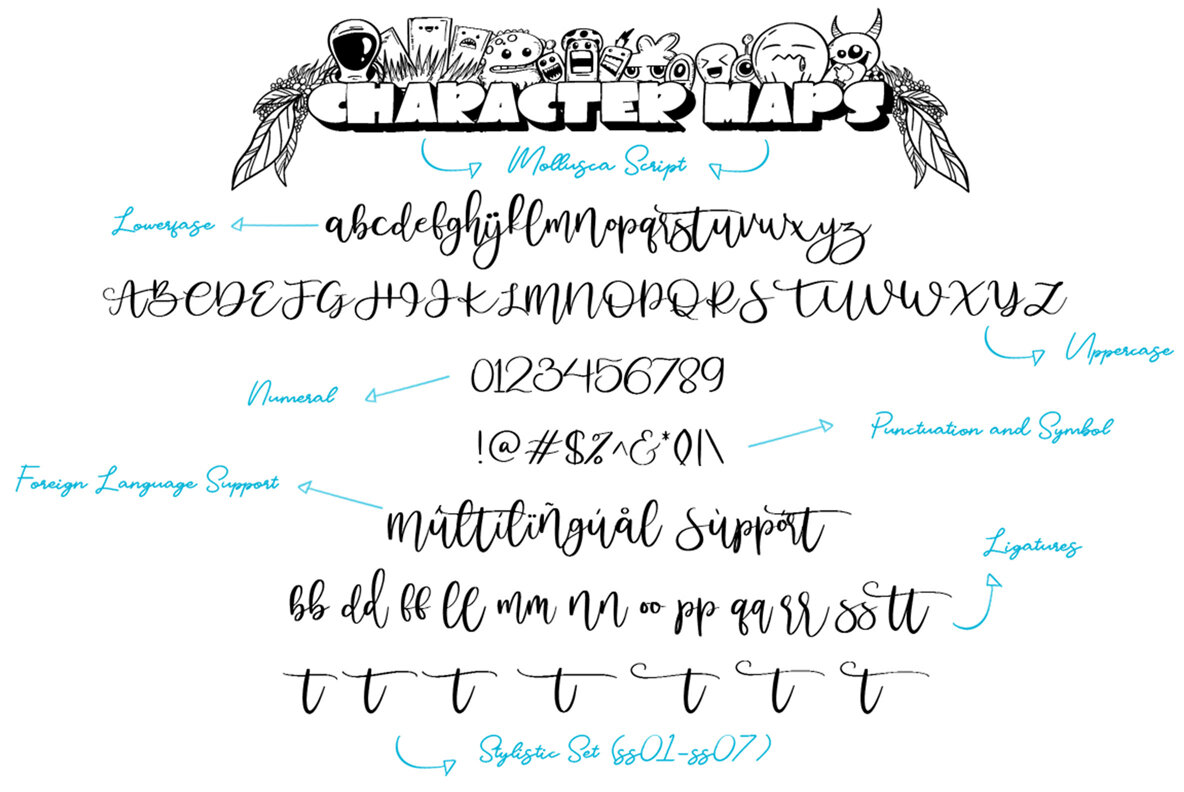 CHARACTER MAPS
Mollusca Script
Lowerfase
abcdefghijklmnopqrstuvwxyz
ABCDEFGHIJKLMNOPQRSTUVWXYZ
Uppercase
0123456789
Numeral
!@#$%^&*()|\
Punctuation and Symbol
Foreign Language Support
Múltílïñgúål Sùppórt
Ligatures
bb dd ff ll mm nn oo pp qq rr ss tt
t t t t t t t
Stylistic Set (ss01-ss07)